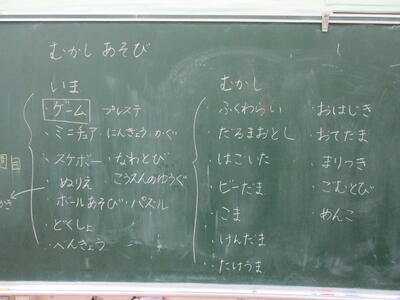 むかし あそび
いま
・ゲーム プレステ
・ミニチュア・にんぎょう・かぐ
・スケボー・なわとび
・ぬりえ こうえんのゆうぐ
・ボールあそび・パズル
・どくしょ
・べんきょう
むかし
・ふくわらい
・だるまおとし
・はごいた
・ビーだま
・こま
・けんだま
・たけうま
・おはじき
・おてだま
・まりつき
・ごむとび
・めんこ